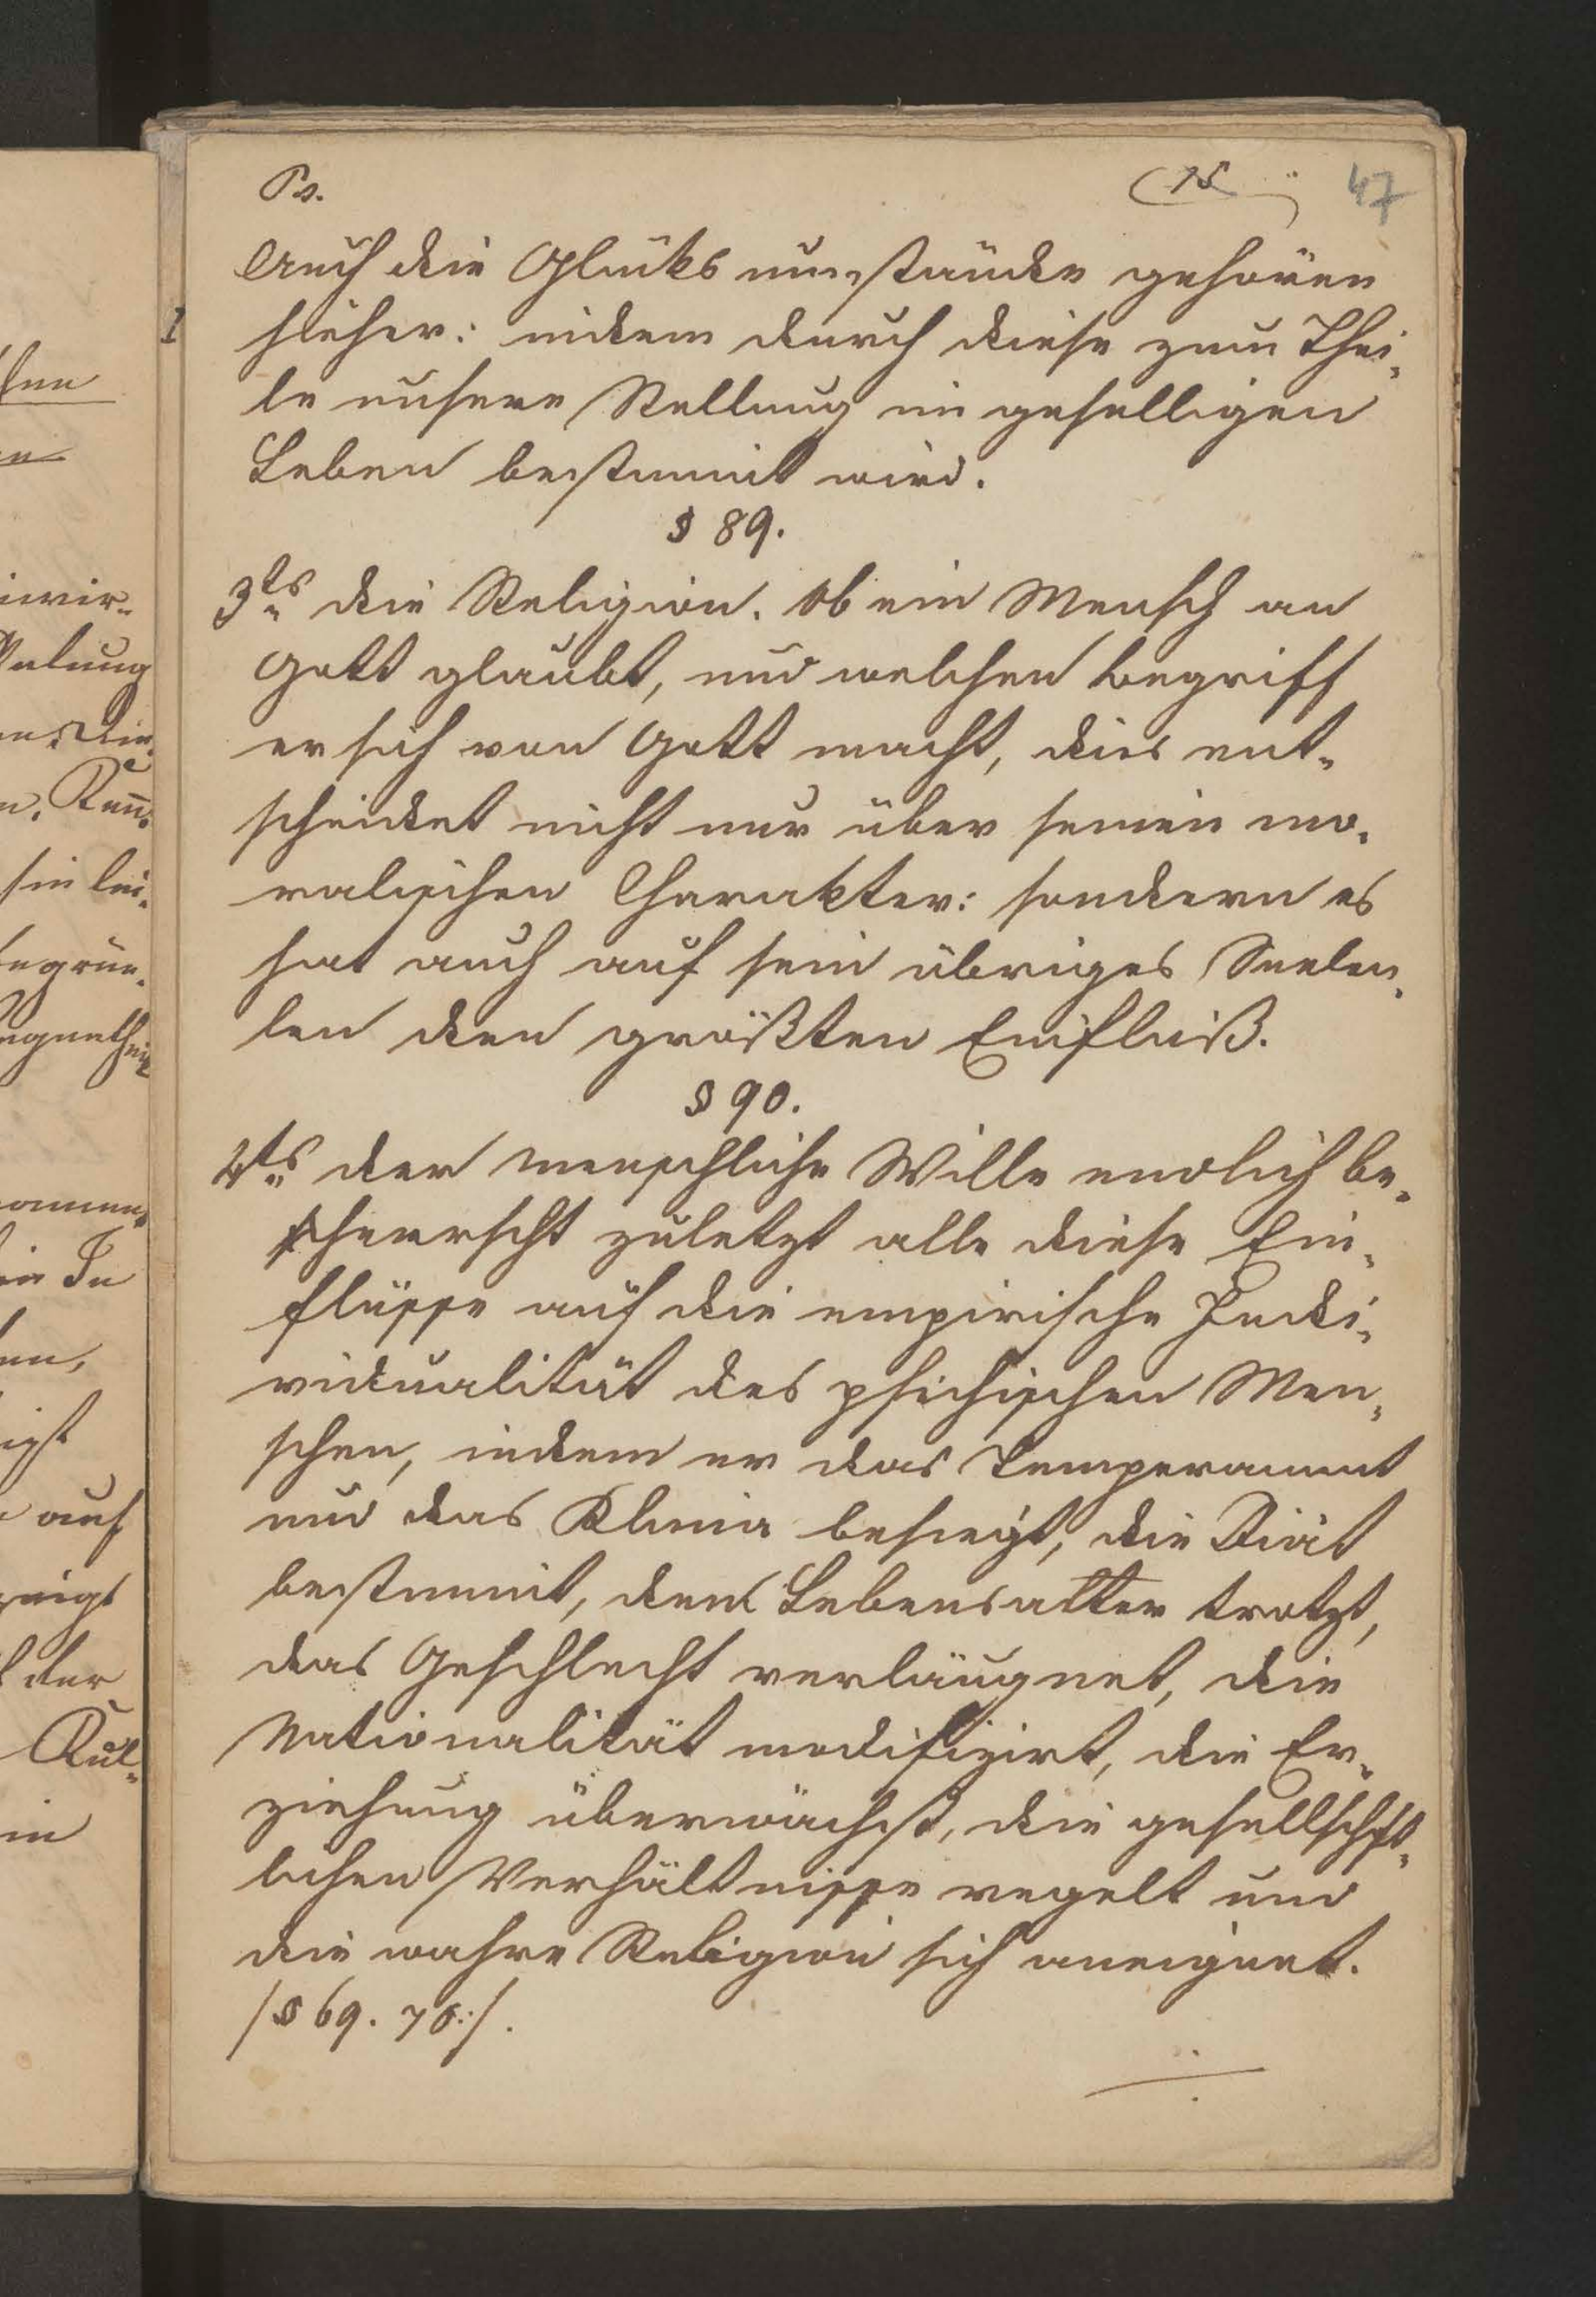 Ps. (15 47
Auch die Glüks umstände gehören
hieher: indem durch diese zum Thei-
le unsere Stellung im geselligen
Leben bestimmt wird.
§ 89.
3tes die Religion. Ob ein Mensch an
Gott glaubt, und welchen Begriff
er sich von Gott macht, dies ent-
scheidet nicht nur über seinen mo-
ralischen Charakter: sondern es
hat auch auf sein übriges Seelen-
len den größten Einfluß.
§ 90.
4tes der menschliche Wille endlich be-
herrscht zuletzt alle diese Ein-
flüsse auf die empirische Indi-
vidualität des psichischen Men-
schen, indem er das Temperament
und das Klima besiegt, die Diät
bestimmt, dem Lebensalter trotzt,
das Geschlecht verläugnet, die
Nationalität modifizirt, die Er-
ziehung überwächst, die gesellschft-
lichen Verhältnisse regelt und
die wahre Religion sich aneignet.
/§ 69. 70:/.